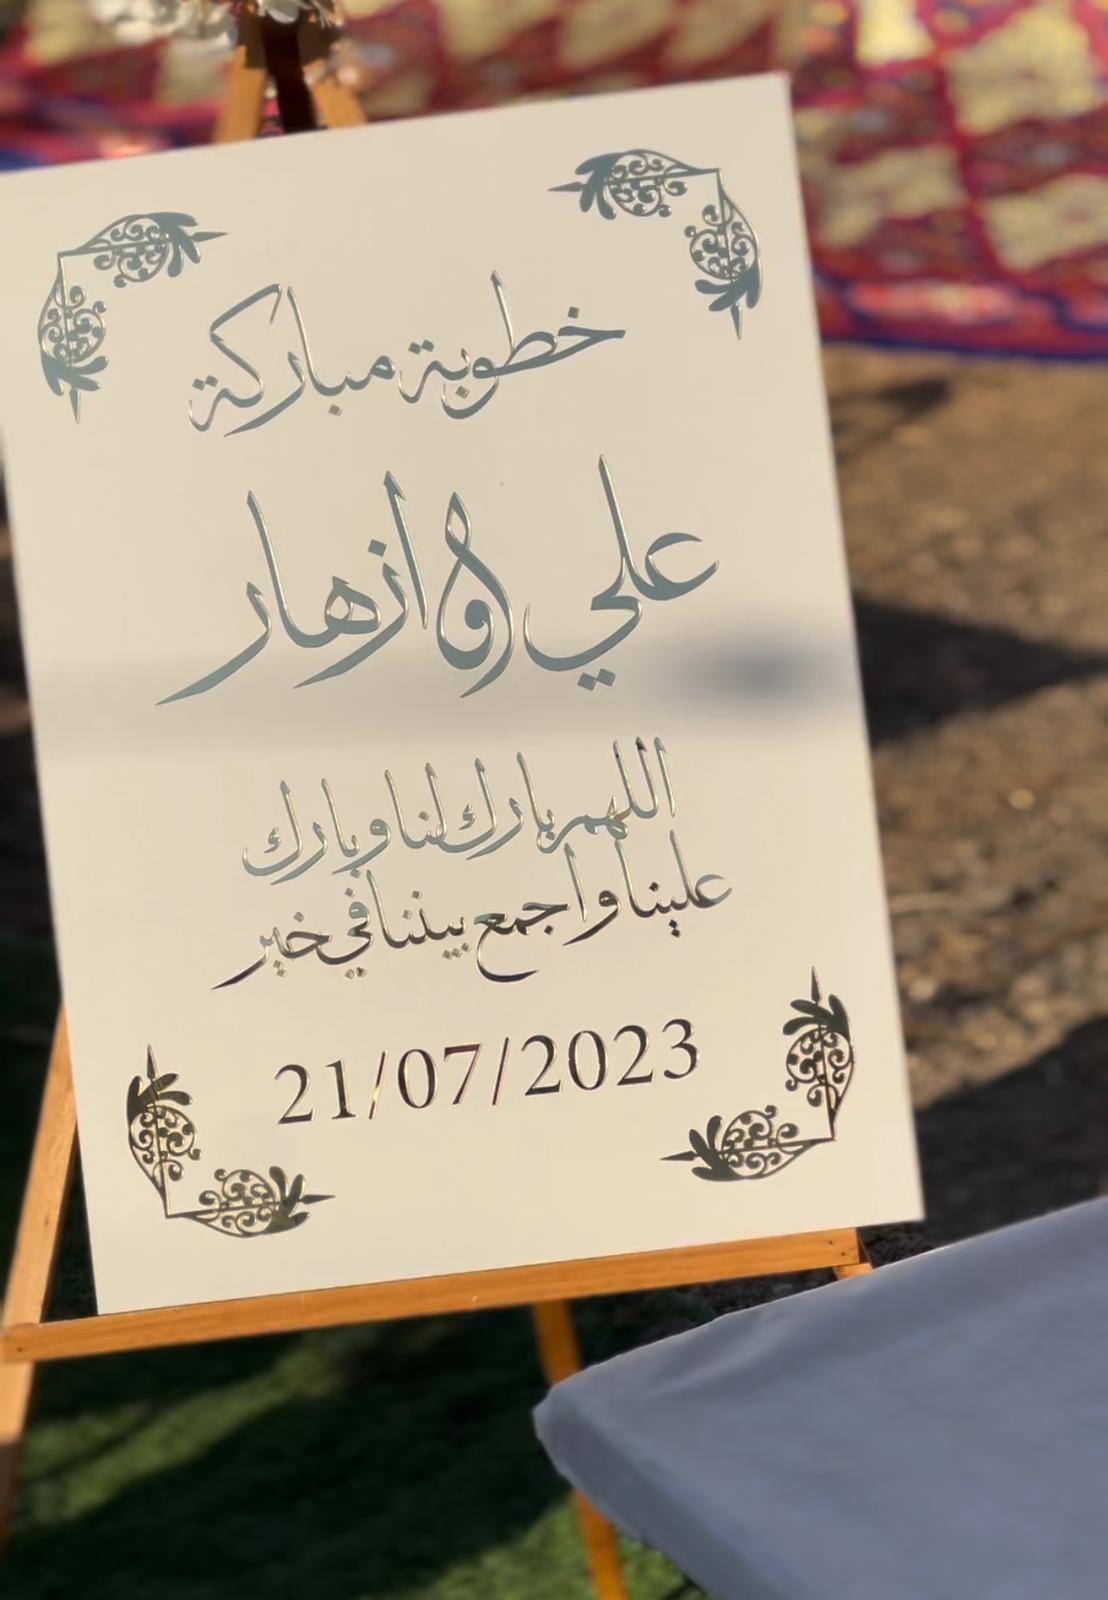 خطوبة مباركة
علي و ازهار
اللهم بارك لنا وبارك
علينا واجمع بيننا في خير
21/07/2023